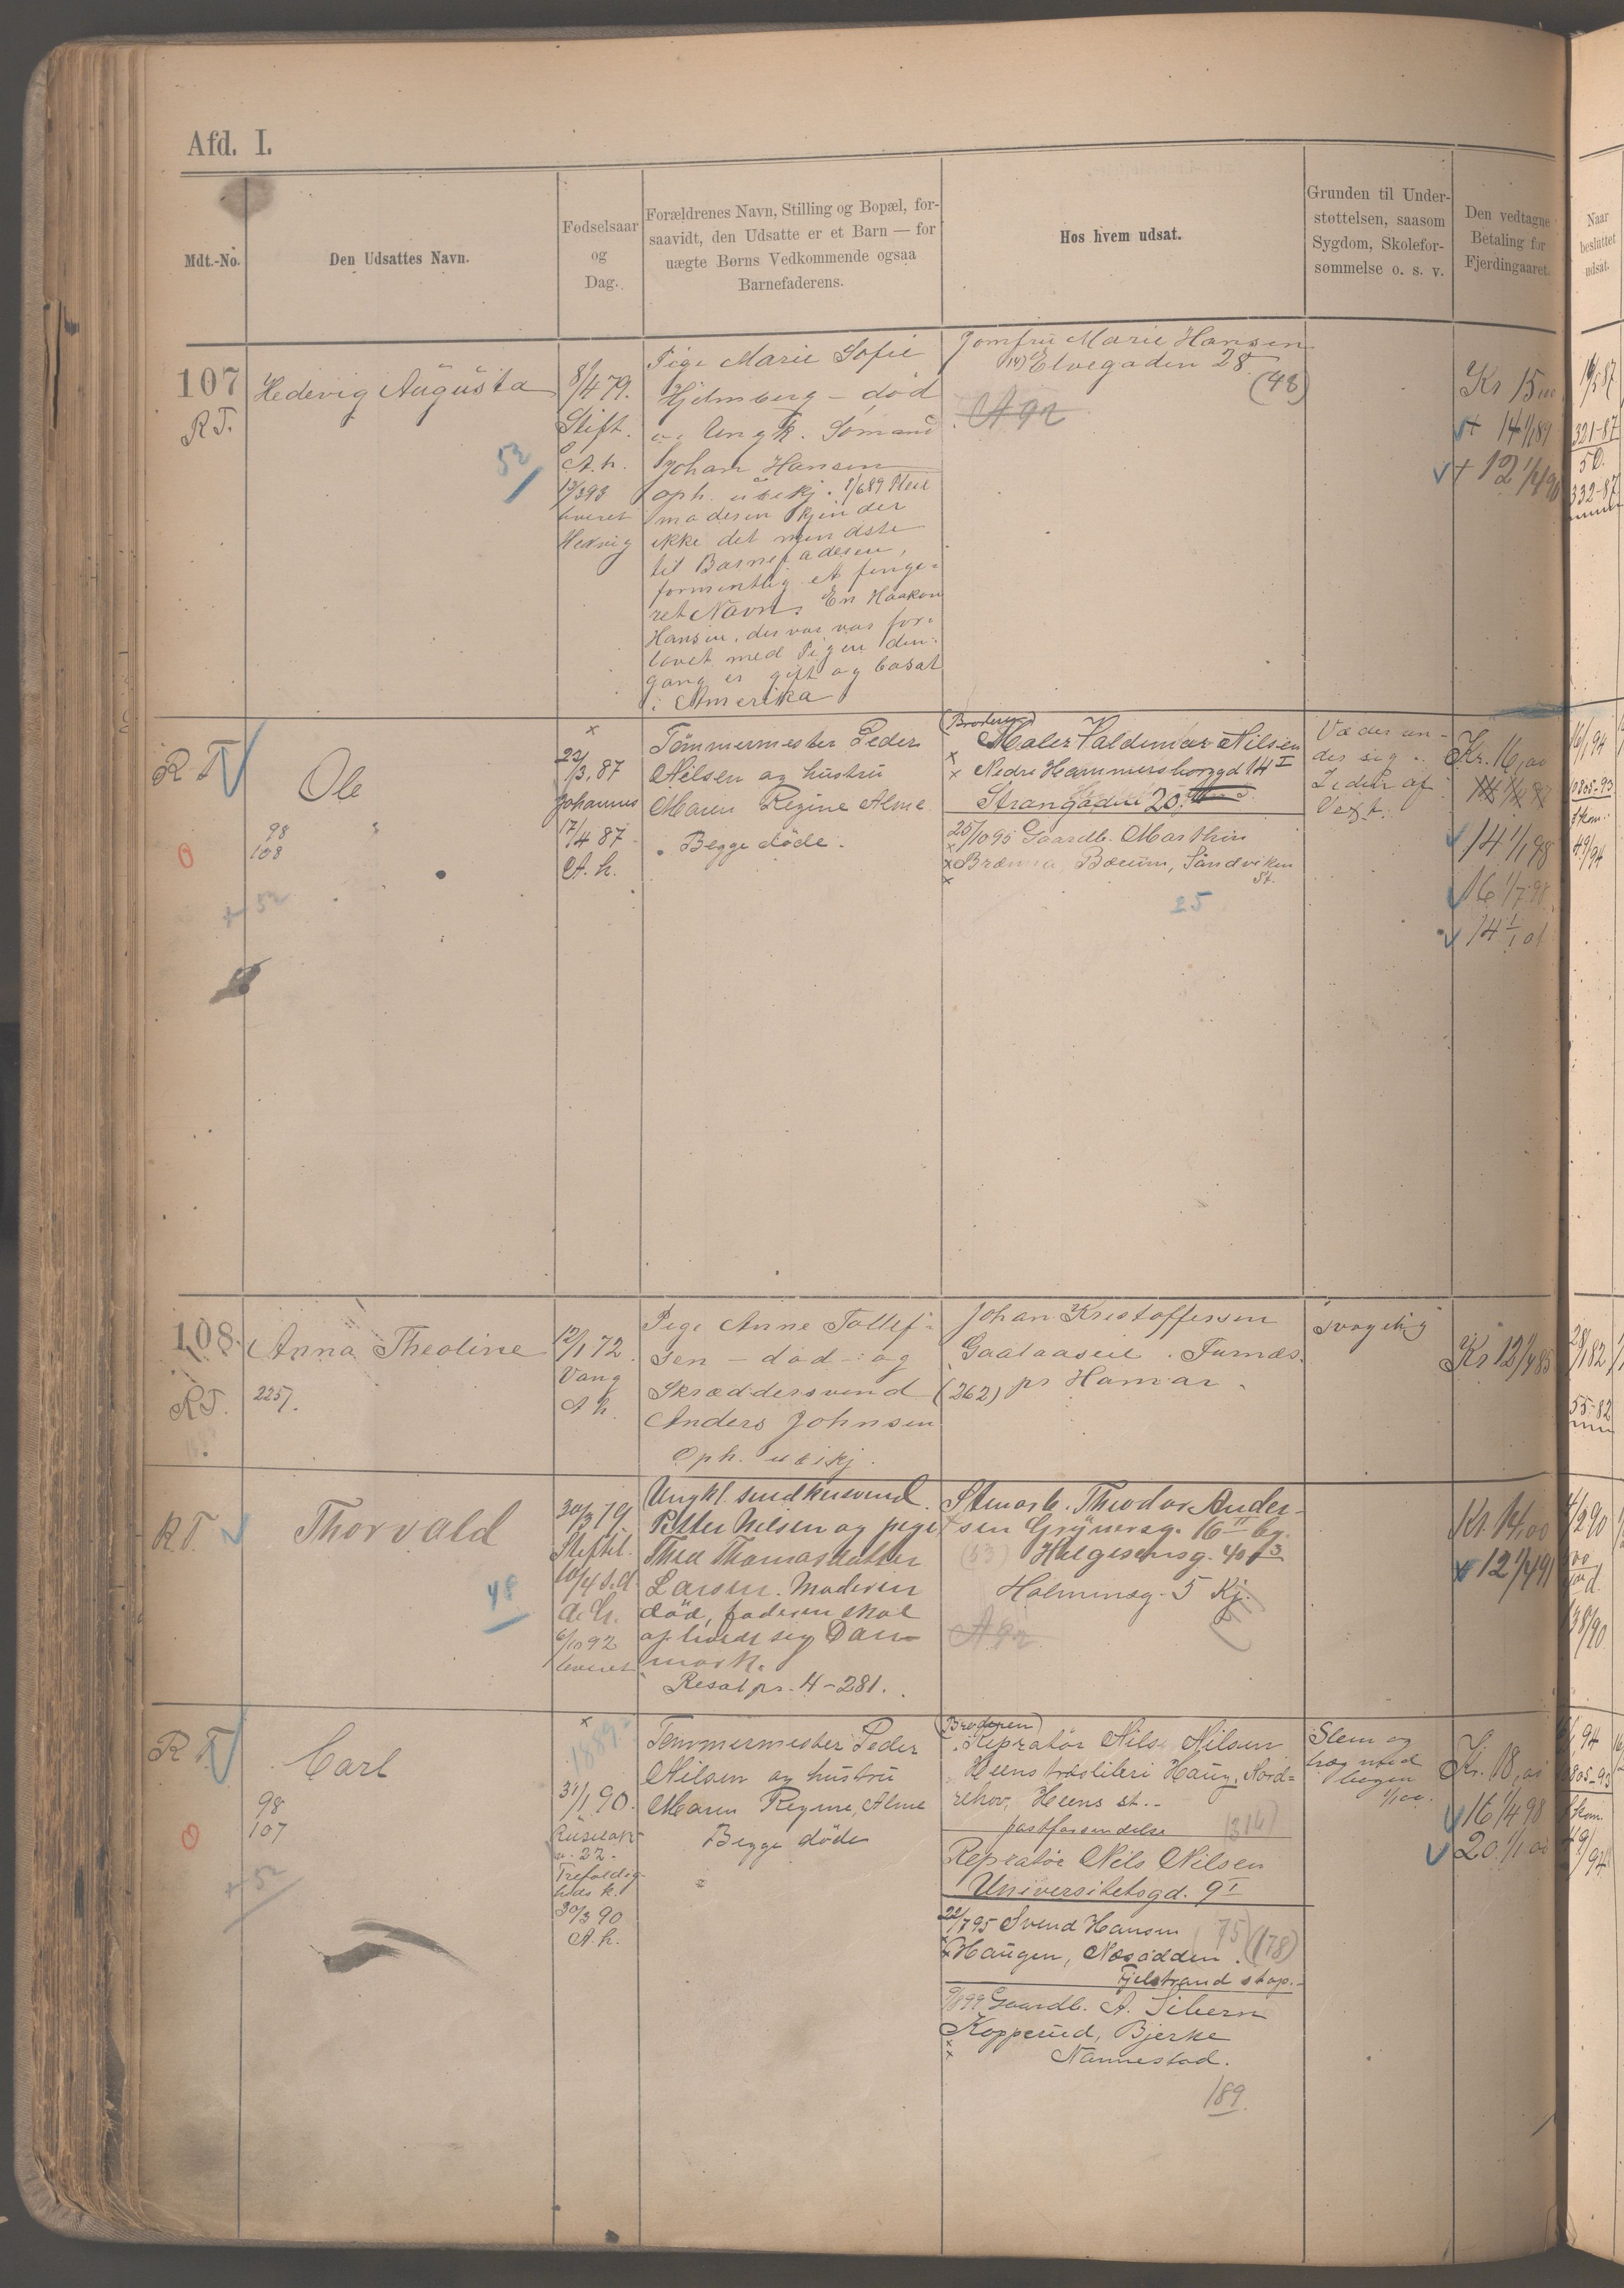 Afd. I.
Mdt.-No.
Den Udsattes Navn.
Fødselsaar
og
Dag.
Forældrenes Navn, Stilling og Bopæl, for-
saavidt, den Udsatte er et Barn — for
uægte Børns Vedkommende ogsaa
Barnefaderens.
Hos hvem udsat.
Grunden til Under-
støttelsen, saasom
Sygdom, Skolefor-
sømmelse o. s. v.
Den vedtagne
Betaling for
Fjerdingaaret.
Naar
besluttet
udsat.
107
R T.
Hedevig Augusta
52
8/4 79.
Stift.
A. h.
13/3 93
leveret
Hedvig
Pige Marie Sofie
Hjelmberg – död
og Ungk. Sömand
Johan Hansen
oph. ubekj. 8/6 89 Mor
moderen kjender
ikke det mindste
til Barnefaderen,
formentlig et finge-
ret Navn. En Haakon
Hansen, der var for-
lovet med Pigen den-
gang er gift og bosat
i Amerika
Jomfru Marie Hansen
Elvegaden 28
(48)
A 92
Kr 15
+ 14 1/1 89
+ 12 1/4 90
321-87
50.
332-87
R T
Ole
98
108
+ 52
×
22/3, 87
Johannes
17/4 87
A. h.
Tömmermester Peder
Nilsen og hustru
Maren Regine Alme
Begge döde.
(Broderen)
Maler Valdemar Nilsen
Nedre Hammersborggd 14 I
Strangaden 20.
25/10 95 Gaardb. Marthin
Brænna, Bærum, Sandviken
St.
25
Væder un-
der sig.
Lider af
Vext.
Kr. 16,00
14 1/1 98
16 1/7 98
14 1/1 01
16/1 94
1805-93
49/94
108.
R T.
Anna Theoline
2257.
12/1 72
Vang
A h.
Pige Anne Tollef-
sen – död – og
Skræddersvend
Anders Johnsen
Oph. ubekj.
Johan Kristoffersen
Gaalaaseie. Furnæs.
(262) pr Hamar.
Svagelig
Kr 12 1/4 85
28/1 82
55-82
R T.
Thorvald
48
30/3 79
10/4 s. d.
A. h.
6/10 92
leveret
Ungkl. smedkersvend
Petter Nilsen og pige
Thea Thomasdatter
Larsen. Moderen
död, faderen skal
opholde sig Dan-
mark.
Resol pr. 4-281.
Stenarb. Theodor Ander-
sen Grünersg. 16 II bg.
(53) Helgesensg. 40 f 3
Holmensg. 5 Kj.
A 92
Kr. 14,00
12 1/4 91
4/2 90
138/90
R T
Carl
98
107
+ 52
×
1889
31/1 90.
Ruselök-
v. 22.
Trefoldig-
heds k.
30/3 90
A. h.
Tømmermester Peder
Nilsen og hustru
Maren Regine Alme
Begge döde
(Broderen)
Repratör Nils Nilsen
Heens træsliberi Haug, Nord-
rehov, Heens st.
postforsendelse (314)
Repratör Nils Nilsen
Universitetsgd. 9 I
22/7 95 Svend Hansen (75)
Haugen, Næsodden. (178)
Fjelstrand stop.
9/8 99 Gaardb. A. Sibern
Kopperud, Bjerke
Nannestad.
189
Slem og
træg med
bogen
1/1 00.
Kr. 18,00
16 1/4 98
20 1/1 00
1805-93
49/94